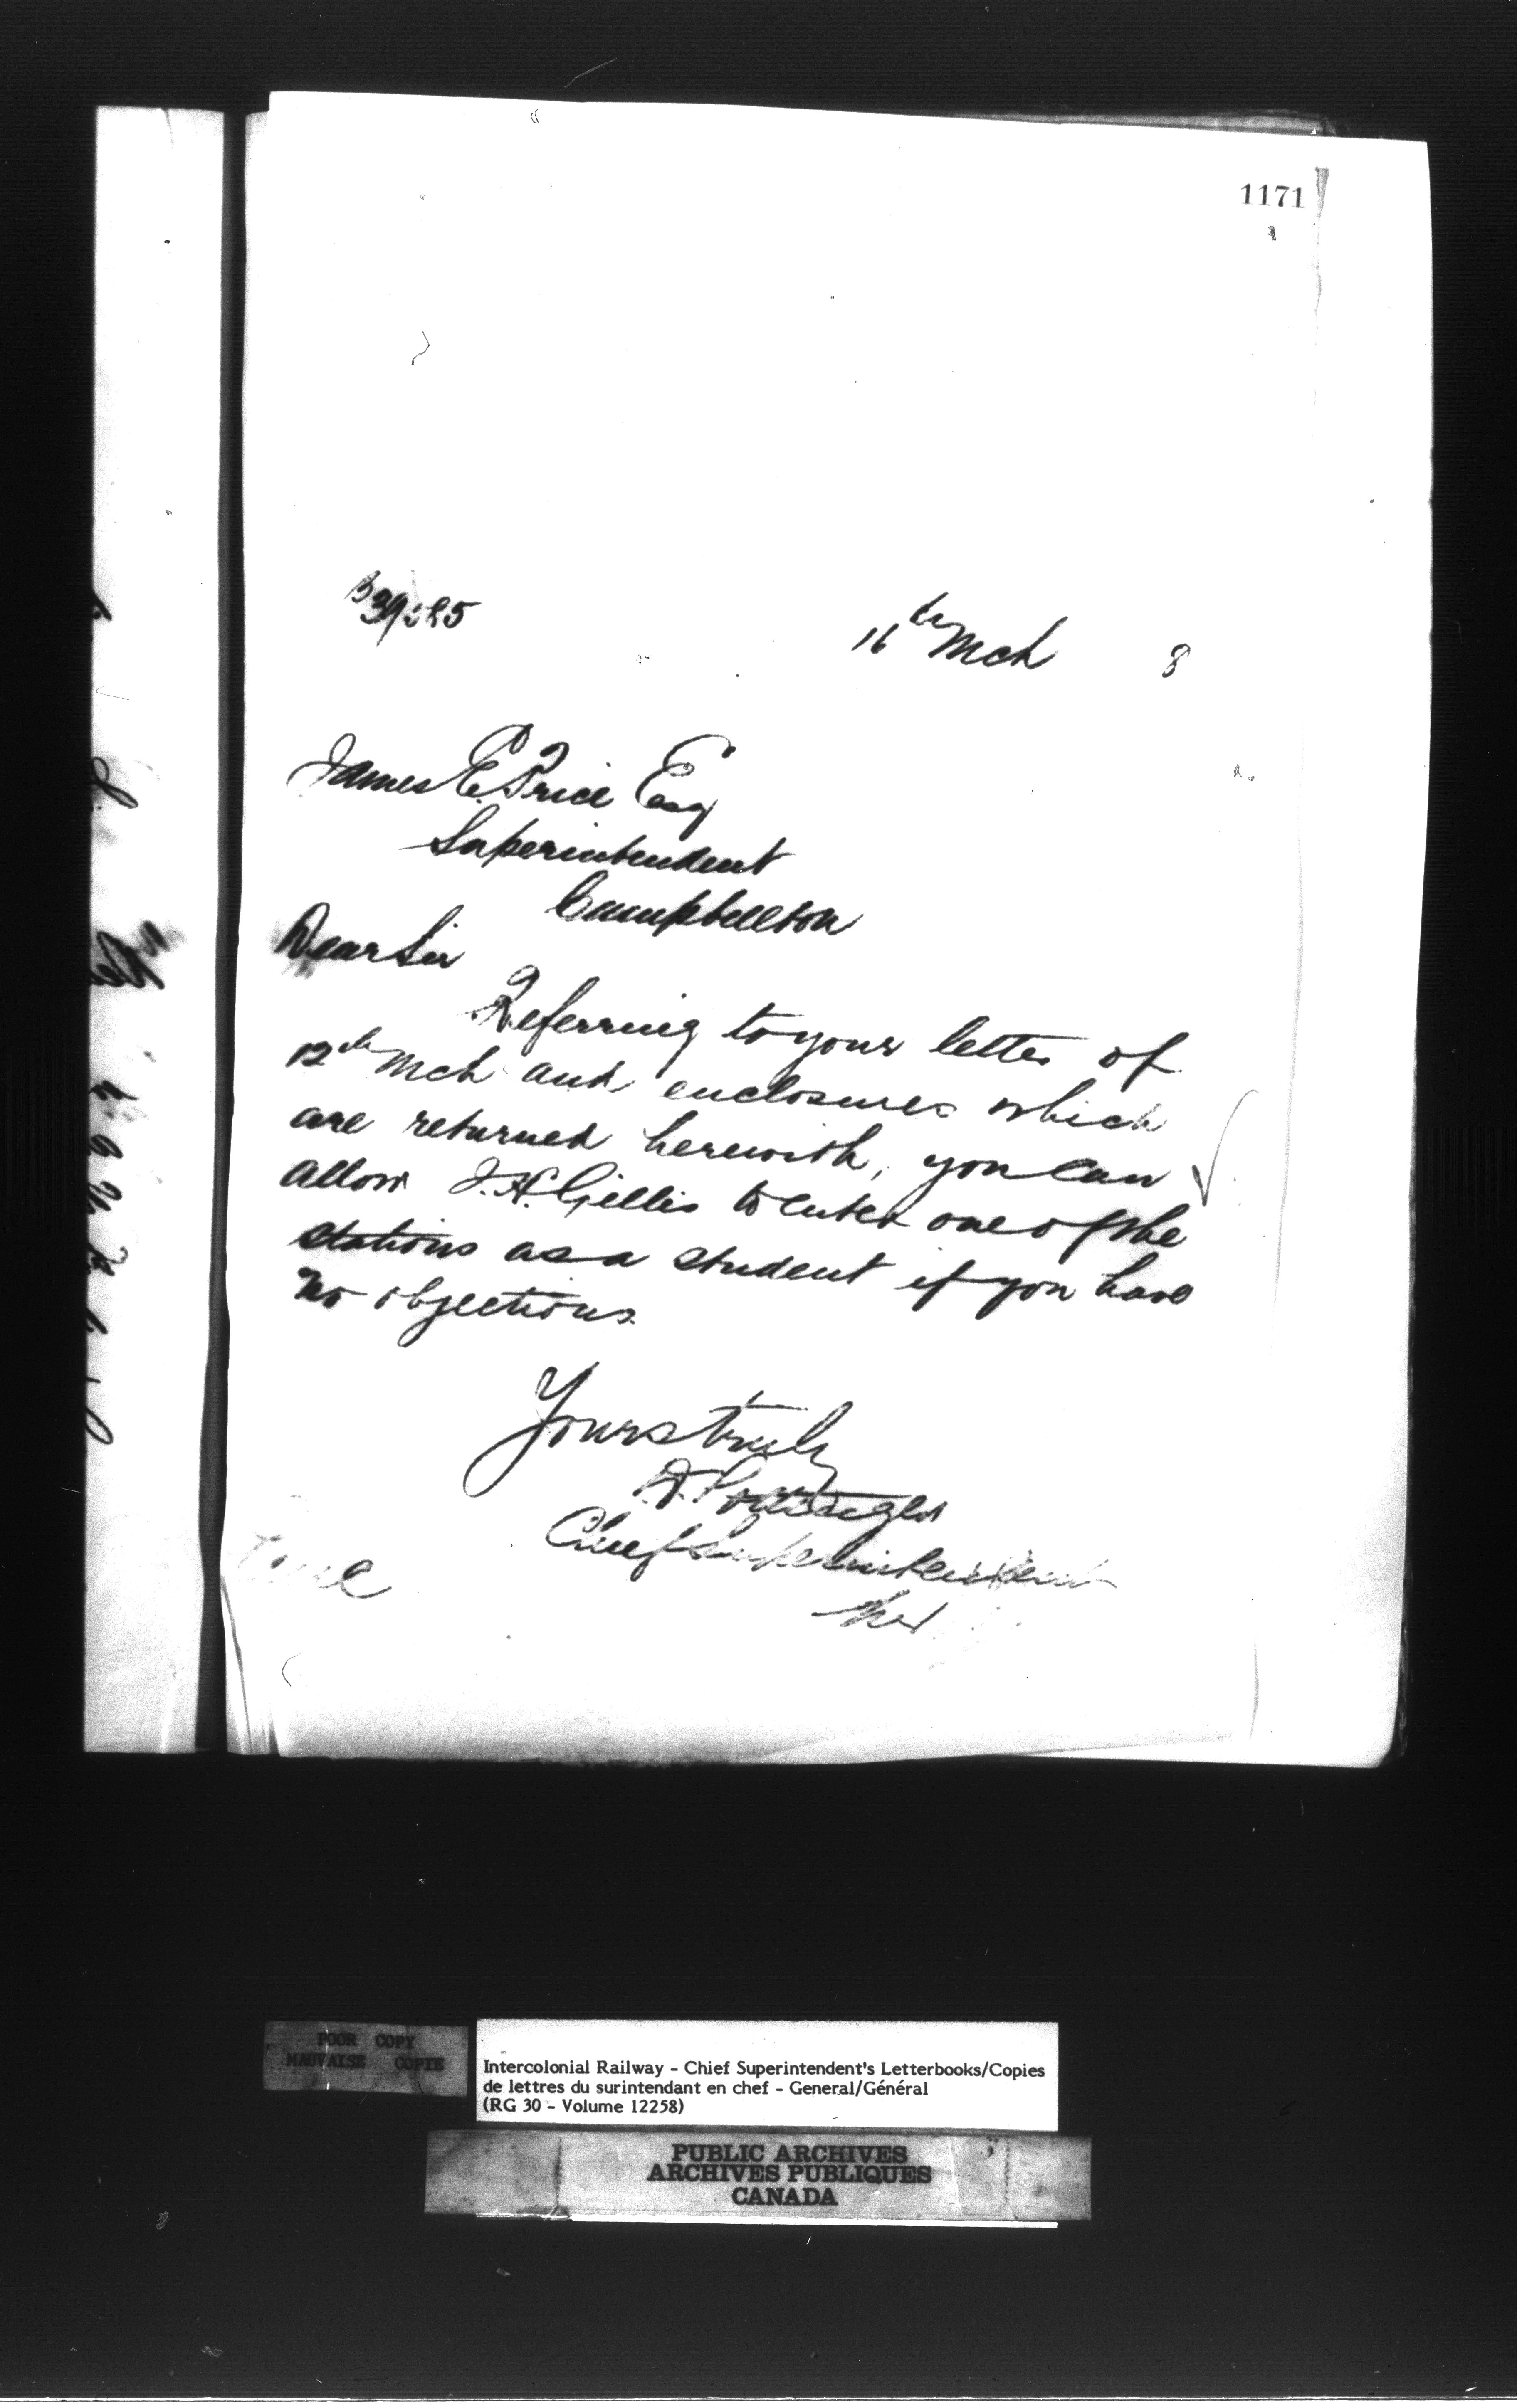 1171
16th Mch 8
James E. Price Esq
Superintendent
Campbellton
Dear Sir
Referring to your letter of
12th Mch and enclosures which
are returned herewith, you can
allow J. H. Gillis to enter one of the
stations as a student if you have
no objections.
Yours truly
D. Pottinger
Chief Superintendent
POOR COPY
MAUVAISE COPIE
Intercolonial Railway - Chief Superintendent's Letterbooks/Copies
de lettres du surintendant en chef - General/Général
(RG 30 - Volume 12258)
PUBLIC ARCHIVES
ARCHIVES PUBLIQUES
CANADA